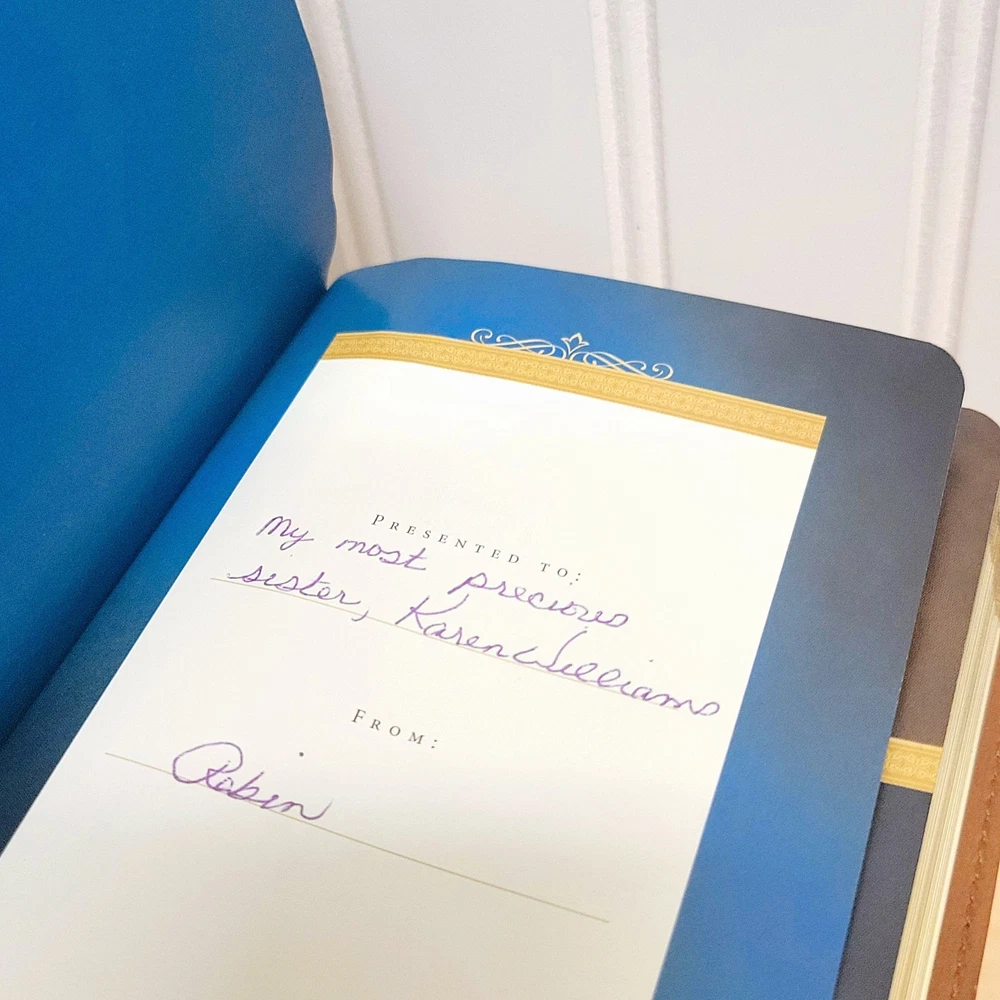 PRESENTED TO:
My most precious
sister, Karen Williams
FROM:
Robin